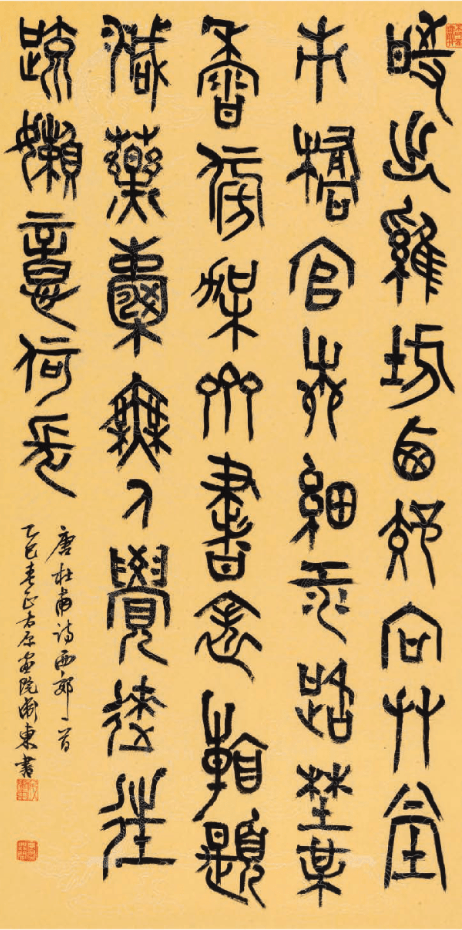 時出雞坊西郊向艸堂
市橋官柳細江路埜某
香傍架齊書帙看題
減藥囊無人覺來往
疏嬾意何長
唐杜甫诗西郊一首
乙巳春正古原畫院衛東書